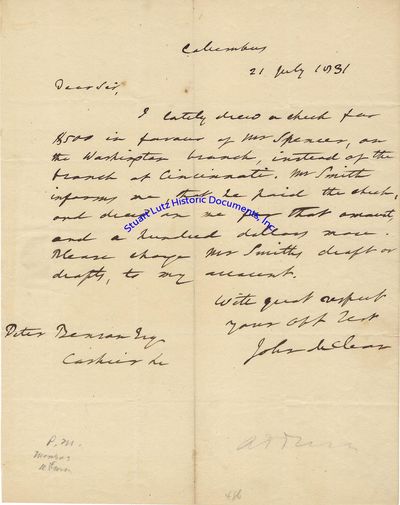 Columbus
21 July 1831
Dear Sir,
I lately drew a check for
$500 in favour of Mr Spencer, on
the Washington branch, instead of the
branch at Cincinnati. Mr Smith
informs me that he paid the check,
and drew on me for that amount
and a hundred dollars more.
Please charge Mr Smiths draft or
drafts, to my account.
With great respect
your obt Svt
John McLean
Peter Benson Esq
Cashier &c
P.M.
Monroe
Stuart Lutz Historic Documents, Inc.